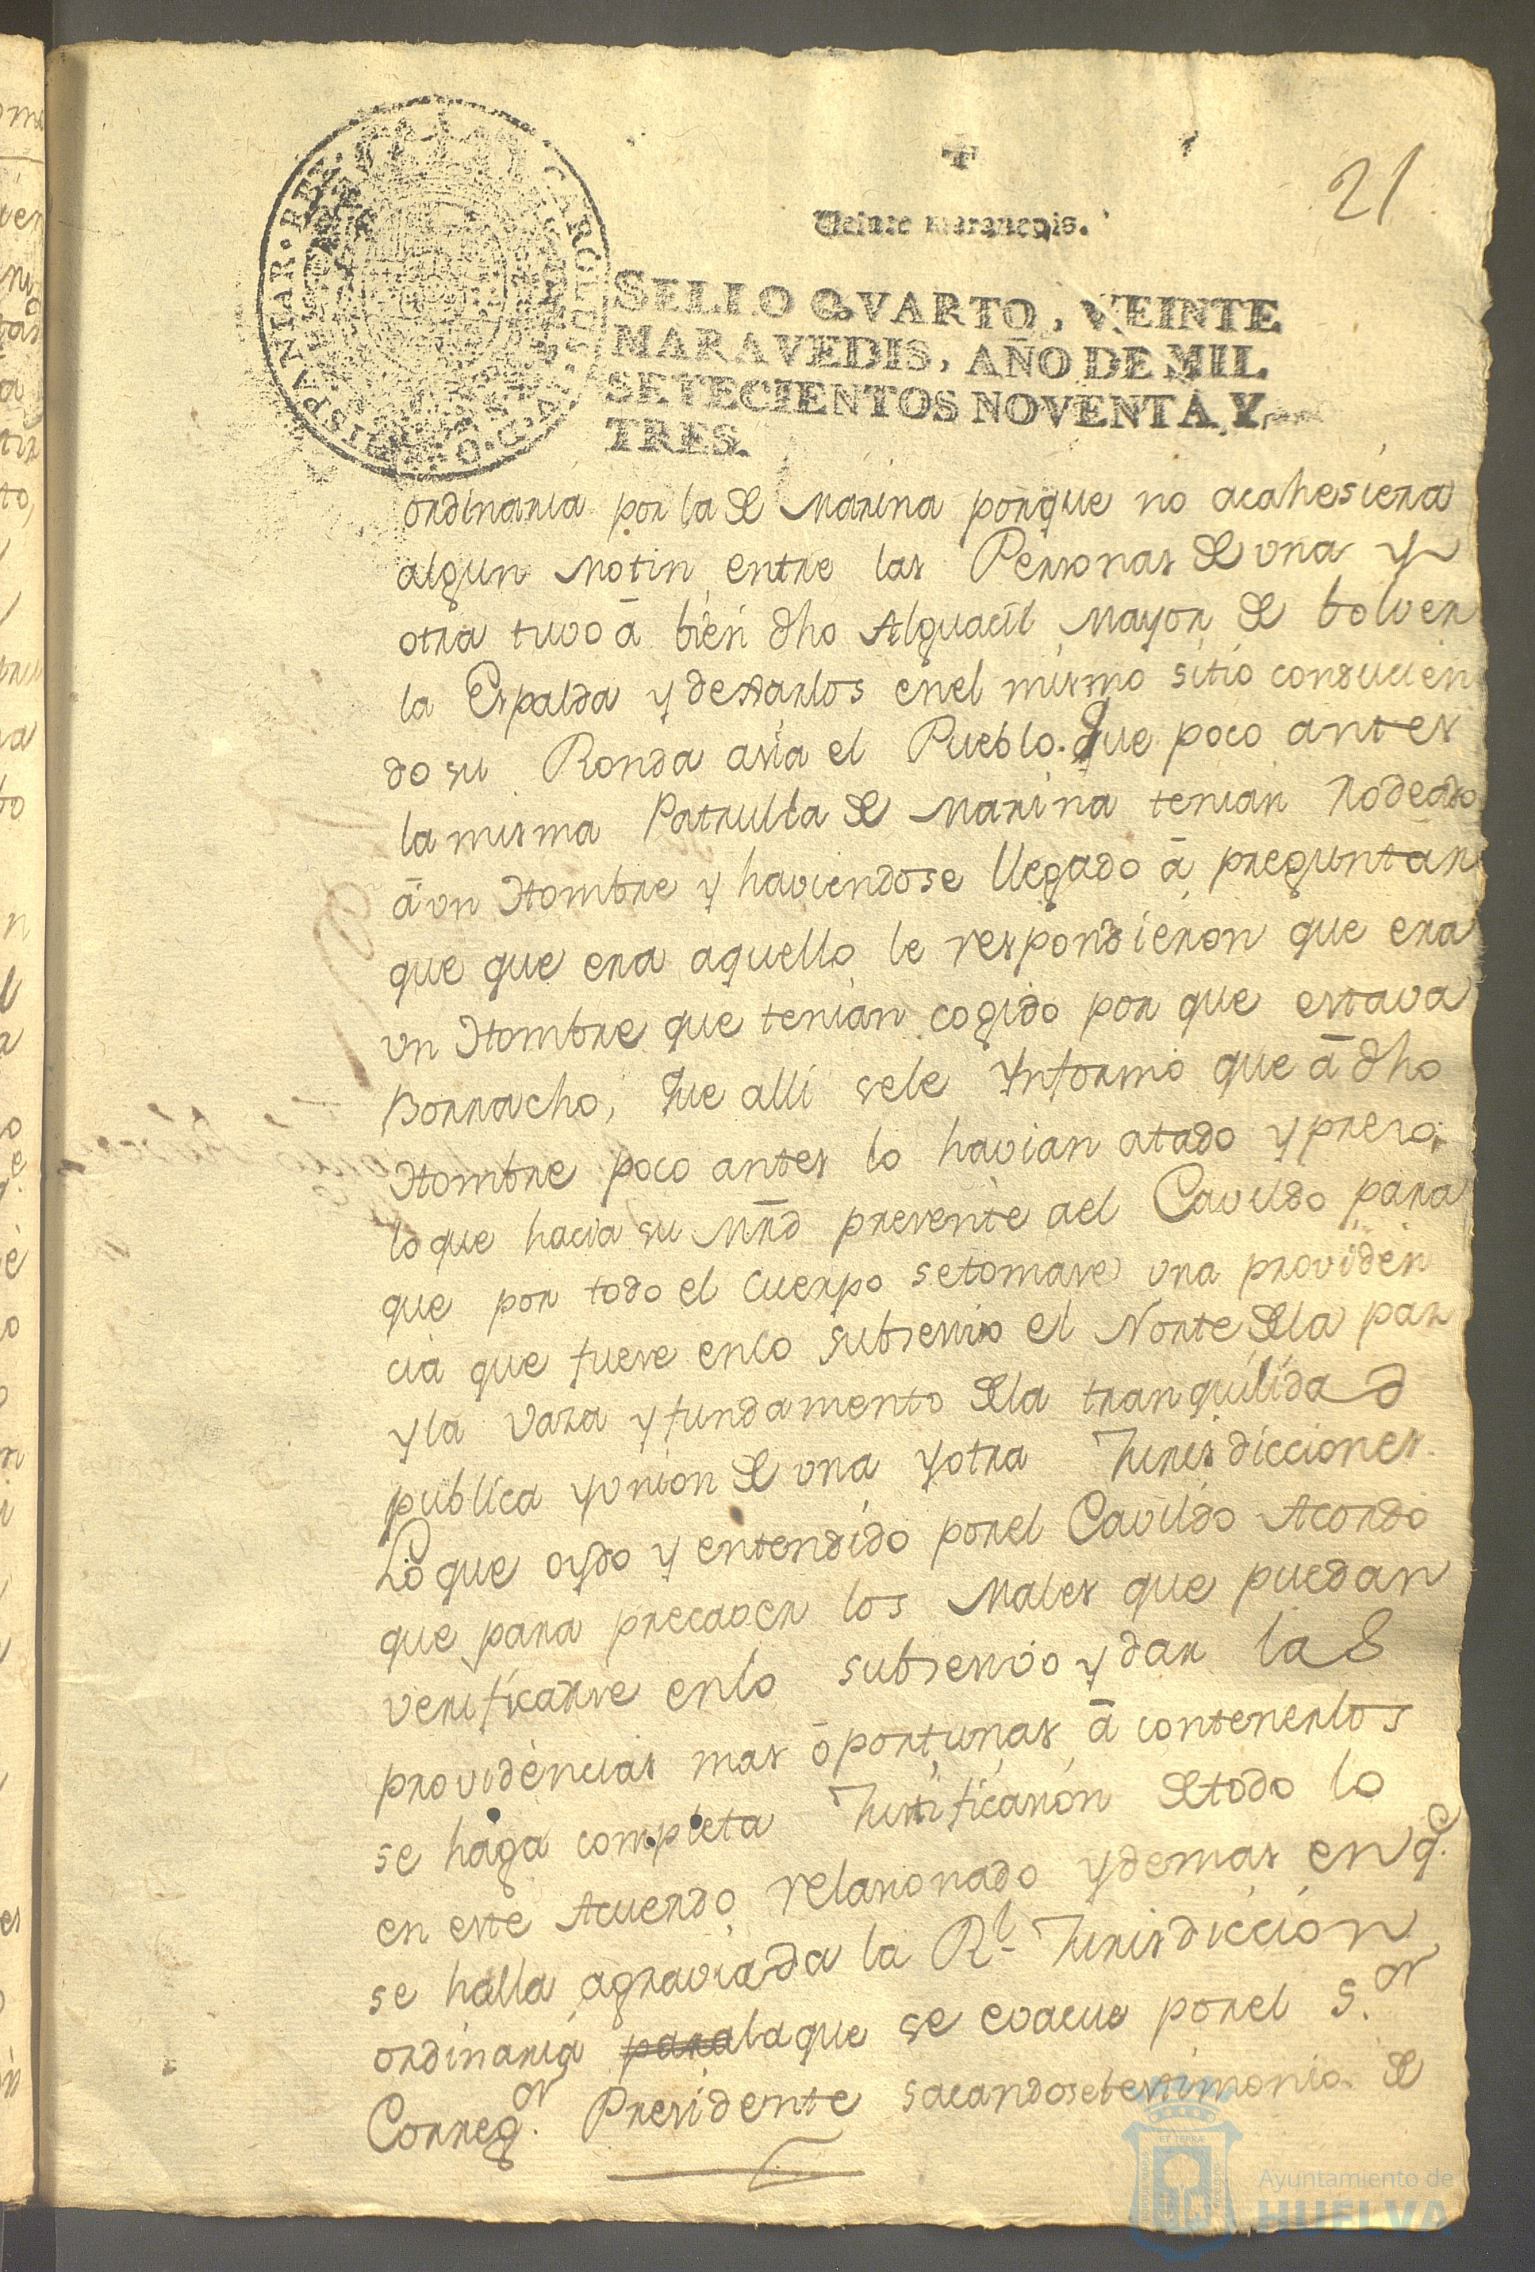 21
Veinte maravedis.
CAROLUS IV D G HISPANIAR REX
SELLO QVARTO, VEINTE
MARAVEDIS, AÑO DE MIL
SETECIENTOS NOVENTA Y
TRES.
ordinaria por la de Marina porque no acahesiera
algun Motin entre las Personas de una y
otra tuvo â bien dho Alguacil Mayor de bolver
la Espalda y dexarlos enel mismo sitio conducien
do su Ronda asia el Pueblo. Que poco antes
la misma Patrulla de Marina tenian rodeado
â un Hombre y haviendose llegado â preguntar
que que era aquello le respondieron que era
un Hombre que tenian cogido por que estava
Borracho, Que alli sele Ynformo que â dho
Hombre poco antes lo havian atado y preso.
lo que hacia su Mrd presente ael Cavildo para
que por todo el cuerpo setomase una providen
cia que fuese enlo subsesivo el Norte dela paz
y la vaza y fundamento dela tranquilidad
publica y union de una y otra Jurisdicciones.
Lo que oydo y entendido porel Cavildo Acordo
que para precaver los Males que puedan
verificarse enlo subsesivo y dar las
providencias mas ôportunas â contenerlos
se haga completa Justificasion de todo lo
en este Acuerdo relasionado y demas en q.e
se halla agraviada la R.l Jurisdiccion
ordinaria para la que se evacue porel S.or
Correg.or Presidente sacandose testimonio de
ET TERRAE
Ayuntamiento de
HUELVA